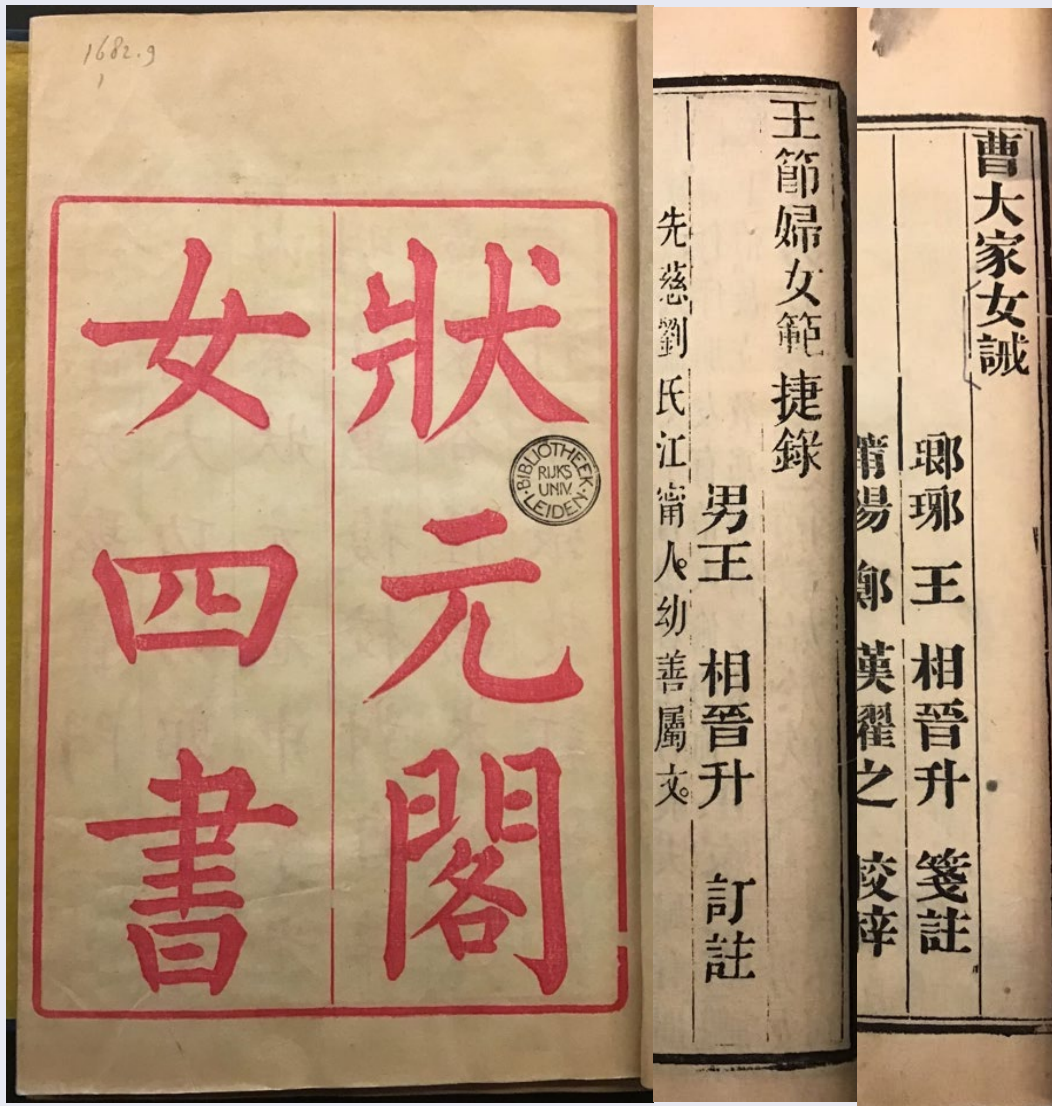 1682.9
1
狀元閣
女四書
BIBLIOTHEEK
RIJKS
UNIV.
LEIDEN
王節婦女範捷錄
男王 相晉升 訂註
先慈劉氏江甯人。幼善屬文。
曹大家女誡
瑯琊 王 相晉升 箋註
莆陽 鄭 漢濯之 校梓